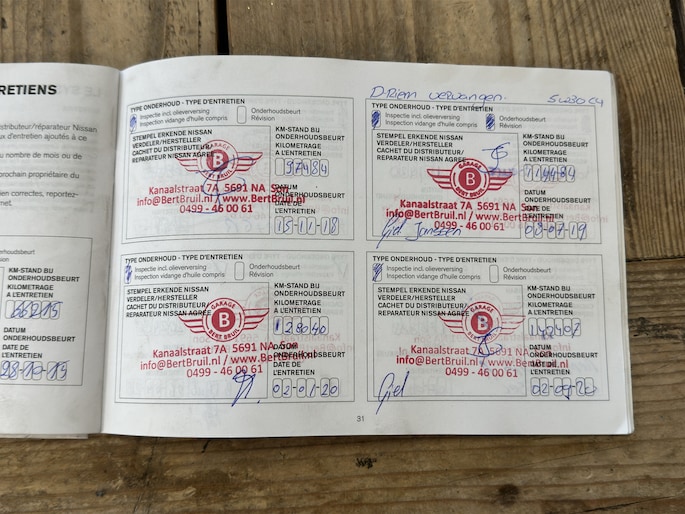 RETIENS
distributeur/réparateur Nissan
d'entretien ajoutés à ce
u nombre de mois ou de
prochain propriétaire du
ien correctes, reportez-
rnet.
houdsbeurt
KM-STAND BIJ
ONDERHOUDSBEURT
KILOMETRAGE
A L'ENTRETIEN
66215
DATUM
ONDERHOUDSBEURT
DATE DE
L'ENTRETIEN
28-10-15
TYPE ONDERHOUD - TYPE D'ENTRETIEN
Inspectie incl. olieverversing
Inspection vidange d'huile compris
Onderhoudsbeurt
Révision
STEMPEL ERKENDE NISSAN
VERDELER/HERSTELLER
CACHET DU DISTRIBUTEUR/
REPARATEUR NISSAN AGREE
KM-STAND BIJ
ONDERHOUDSBEURT
KILOMETRAGE
A L'ENTRETIEN
97484
B
Kanaalstraat 7A 5691 NA Son
info@BertBruil.nl / www.BertBruil.nl
0499 - 46 00 61
DATUM
ONDERHOUDSBEURT
DATE DE
L'ENTRETIEN
15-11-18
D-Riem vervangen. 5W30 C4
TYPE ONDERHOUD - TYPE D'ENTRETIEN
Inspectie incl. olieverversing
Inspection vidange d'huile compris
Onderhoudsbeurt
Révision
STEMPEL ERKENDE NISSAN
VERDELER/HERSTELLER
CACHET DU DISTRIBUTEUR/
REPARATEUR NISSAN AGREE
KM-STAND BIJ
ONDERHOUDSBEURT
KILOMETRAGE
A L'ENTRETIEN
114489
GARAGE
B
BERT BRUIL
Kanaalstraat 7A 5691 NA Son
info@BertBruil.nl / www.BertBruil.nl
0499 - 46 00 61
Giel Janssen
DATUM
ONDERHOUDSBEURT
DATE DE
L'ENTRETIEN
03-07-19
TYPE ONDERHOUD - TYPE D'ENTRETIEN
Inspectie incl. olieverversing
Inspection vidange d'huile compris
Onderhoudsbeurt
Révision
STEMPEL ERKENDE NISSAN
VERDELER/HERSTELLER
CACHET DU DISTRIBUTEUR/
REPARATEUR NISSAN AGREE
KM-STAND BIJ
ONDERHOUDSBEURT
KILOMETRAGE
A L'ENTRETIEN
128040
GARAGE
B
BERT BRUIL
Kanaalstraat 7A 5691 NA Son
info@BertBruil.nl / www.BertBruil.nl
0499 - 46 00 61
DATUM
ONDERHOUDSBEURT
DATE DE
L'ENTRETIEN
02-01-20
TYPE ONDERHOUD - TYPE D'ENTRETIEN
Inspectie incl. olieverversing
Inspection vidange d'huile compris
Onderhoudsbeurt
Révision
STEMPEL ERKENDE NISSAN
VERDELER/HERSTELLER
CACHET DU DISTRIBUTEUR/
REPARATEUR NISSAN AGREE
KM-STAND BIJ
ONDERHOUDSBEURT
KILOMETRAGE
A L'ENTRETIEN
142407
GARAGE
B
BERT BRUIL
Kanaalstraat 7A 5691 NA Son
info@BertBruil.nl / www.BertBruil.nl
0499 - 46 00 61
Giel
DATUM
ONDERHOUDSBEURT
DATE DE
L'ENTRETIEN
02-09-20
31